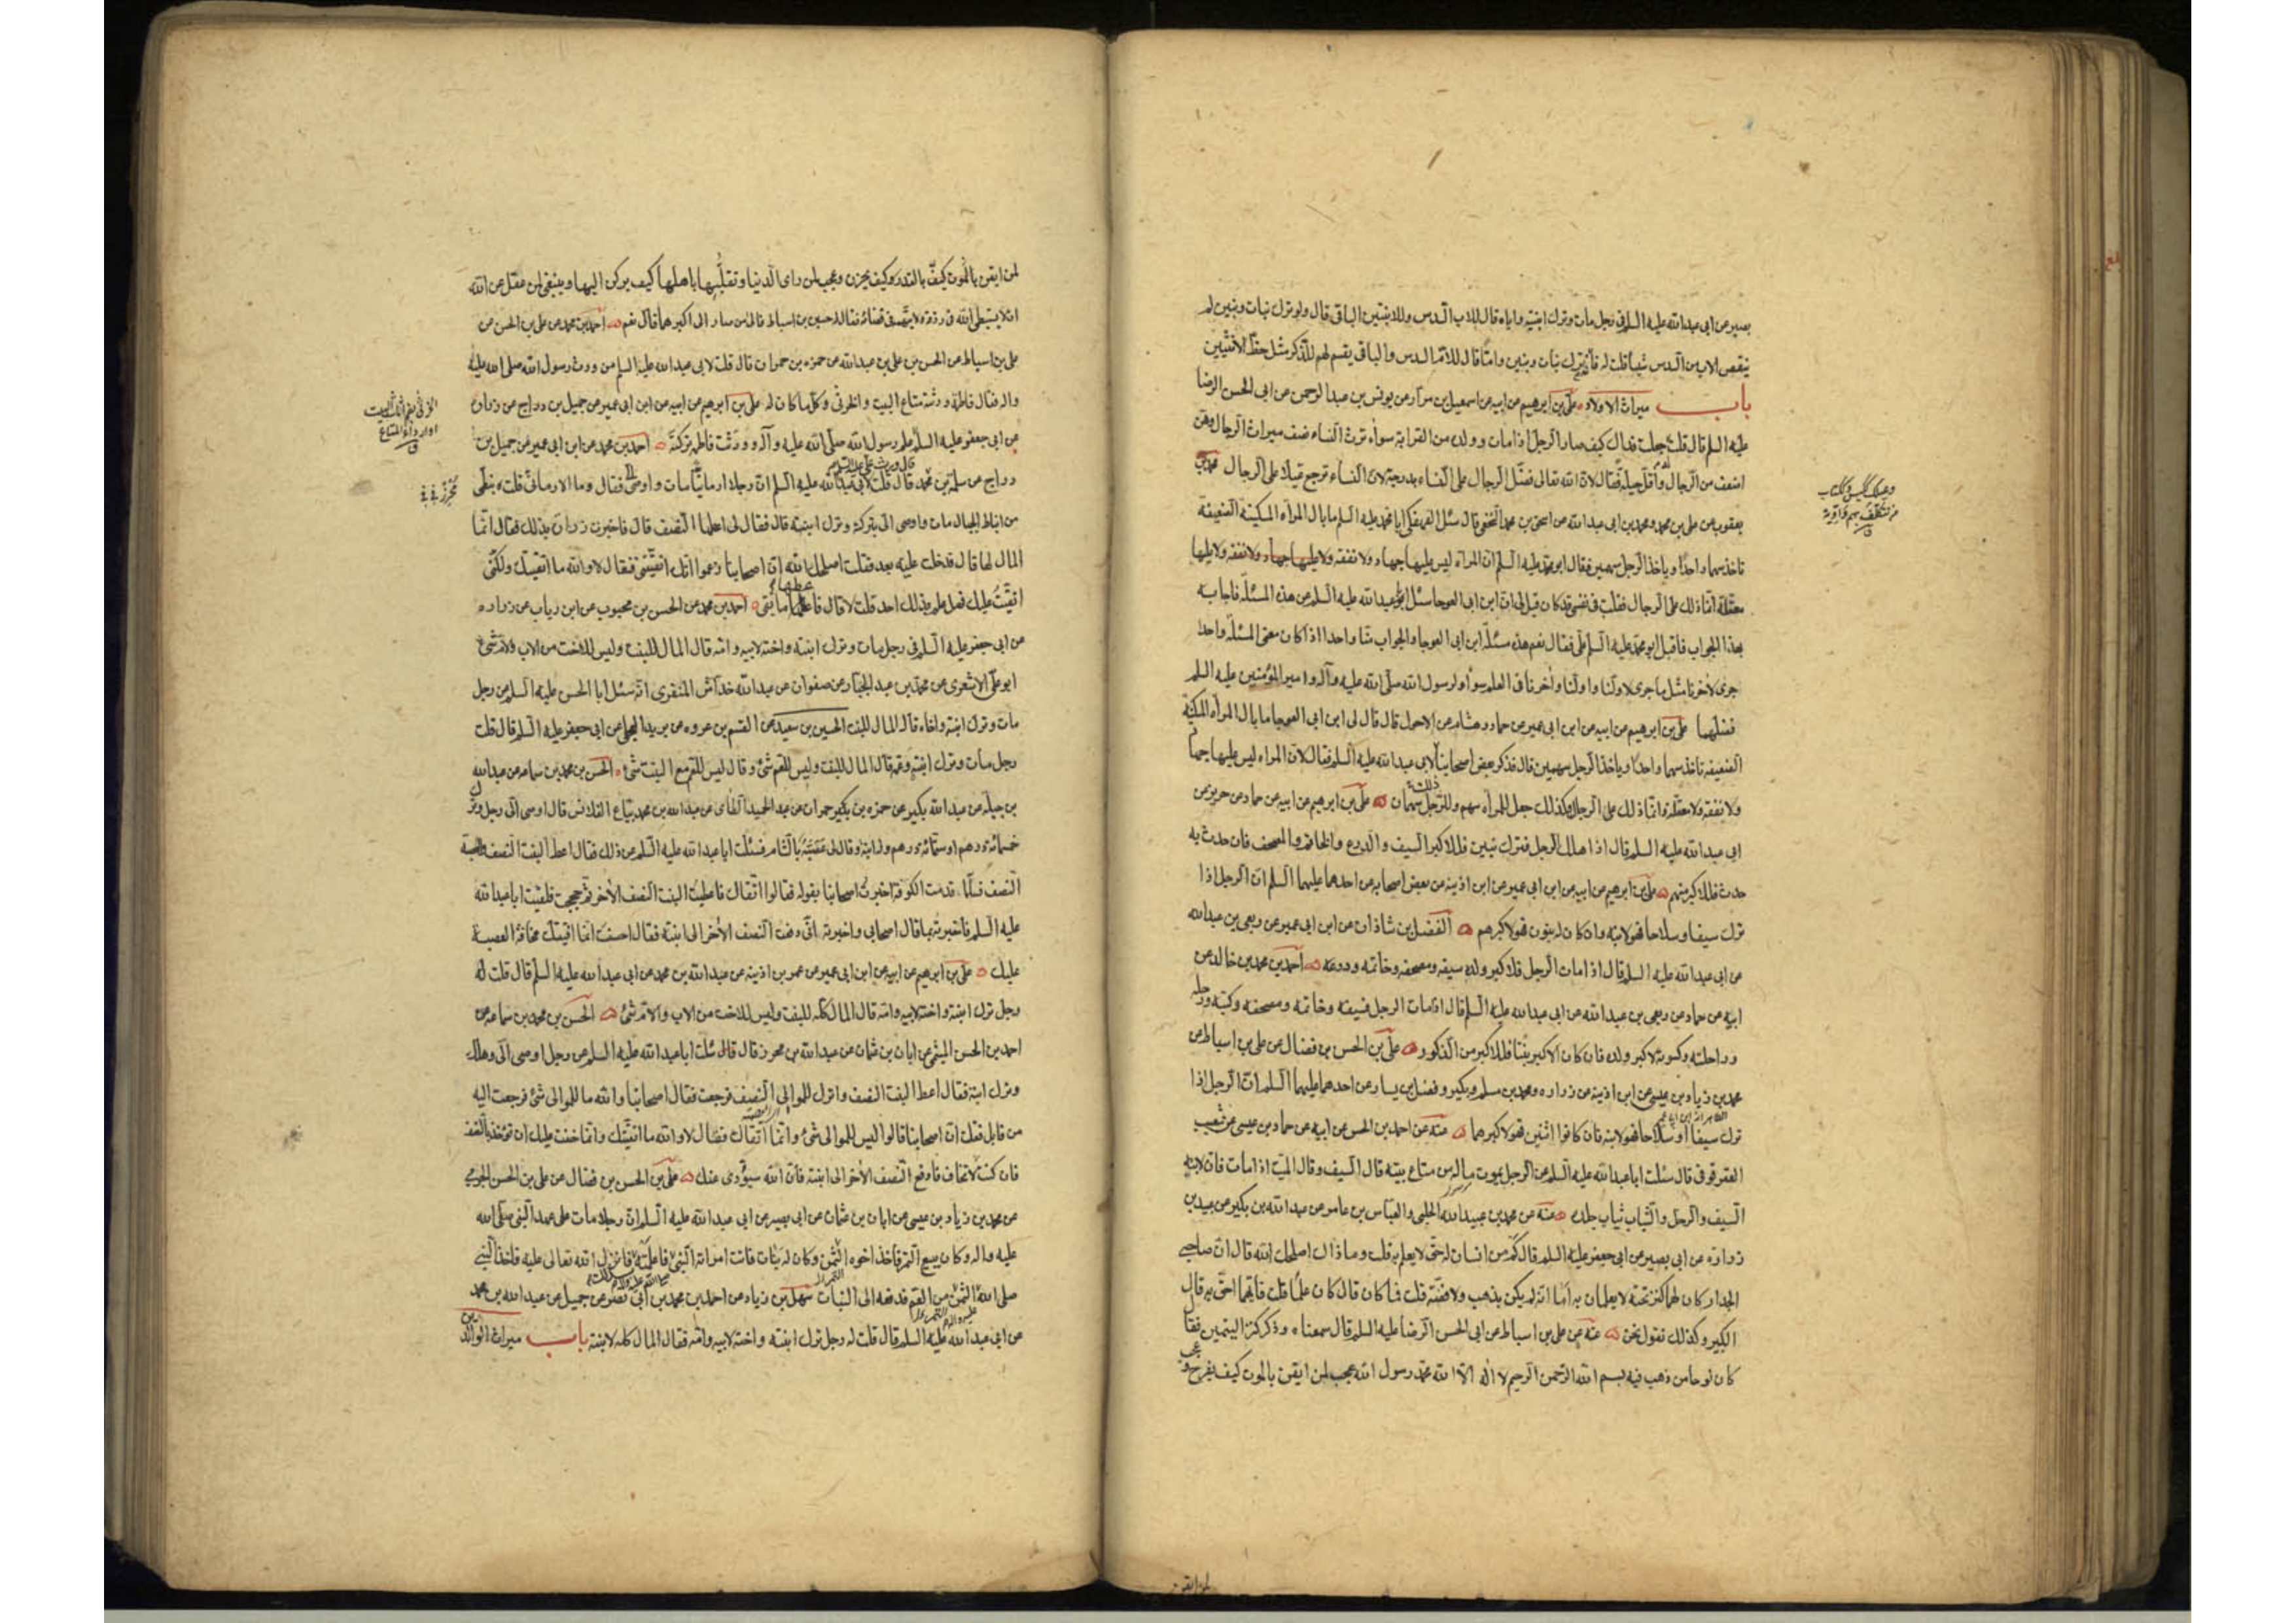 بصير عن ابى عبد الله عليه السلم فى رجل مات وترك ابنتيه واباه قال للاب السدس وللابنتين الباقى قال ولو ترك بنات وبنين لم
ينقص الاب من السدس شيئا قلت له فانه ترك بنات وبنين واما قال للام السدس والباقى يقسم لهم للذكر مثل حظ الانثيين
باب ميراث الاولاد على بن ابرهيم عن ابيه عن اسمعيل بن مرار عن يونس بن عبد الرحمن عن ابى الحسن الرضا
عليه السلم قال قلت جعلت فداك كيف صار الرجل اذا مات وولده من القرابة سواء ترث النساء نصف ميراث الرجال وهن
اضعف من الرجال واقل حيلة فقال لان الله تعالى فضل الرجال على النساء بدرجة لان النساء ترجع عيالا على الرجال محمد بن
يعقوب عن على بن محمد ومحمد بن ابى عبد الله عن اسحق بن محمد النخعى قال سئل الفهفكى ابا محمد عليه السلم ما بال المراة المسكينة الضعيفة
تاخذ سهما واحدا وياخذ الرجل سهمين فقال ابو محمد عليه السلم ان المراة ليس عليها جهاد ولا نفقة ولا عليها جهاد ولا نفقة ولا عليها
معقلة انما ذلك على الرجال فقلت فى نفسى قد كان قيل لى ان ابن ابى العوجا سئل ابا عبد الله عليه السلم عن هذه المسئلة فاجابه
بهذا الجواب فاقبل ابو محمد عليه السلم على فقال نعم هذه مسئلة ابن ابى العوجا والجواب منا واحد اذا كان معنى المسئلة واحدا
جرى لاخرنا مثل ما جرى لاولنا واولنا واخرنا فى العلم سواء ولرسول الله صلى الله عليه وآله وامير المؤمنين عليه السلم
فضلهما على بن ابرهيم عن ابيه عن ابن ابى عمير عن حماد وهشام عن الاحول قال قال لى ابن ابى العوجا ما بال المراة المسكينة
الضعيفة تاخذ سهما واحدا وياخذ الرجل سهمين قال فذكر بعض اصحابنا لابى عبد الله عليه السلم فقال لان المراة ليس عليها جهاد
ولا نفقة ولا معقلة وانما ذلك على الرجل فكذلك جعل للمراة سهم وللرجل سهمان على بن ابرهيم عن ابيه عن حماد عن حريز عن
ابى عبد الله عليه السلم قال اذا هلك الرجل فترك بنين فللاكبر السيف والدرع والخاتم والمصحف فان حدث به
حدث فللاكبر منهم على بن ابرهيم عن ابيه عن ابن ابى عمير عن ابن اذينة عن بعض اصحابه عن احدهما عليهما السلم ان الرجل اذا
ترك سيفا وسلاحا فهو لابنه وان كان له بنون فهو لاكبرهم الفضل بن شاذان عن ابن ابى عمير عن ربعى بن عبد الله
عن ابى عبد الله عليه السلم قال اذا مات الرجل فلاكبر ولده سيفه ومصحفه وخاتمه ودرعه احمد بن محمد بن خالد عن
ابيه عن حماد عن ربعى بن عبد الله عن ابى عبد الله عليه السلم قال اذا مات الرجل فسيفه وخاتمه ومصحفه وكتبه ورحله
وراحلته وكسوته لاكبر ولده فان كان الاكبر بنتا فللاكبر من الذكور على بن الحسن بن فضال عن على بن اسباط عن
محمد بن زياد بن عيسى عن ابن اذينة عن زرارة ومحمد بن مسلم وبكير وفضيل بن يسار عن احدهما عليهما السلم ان الرجل اذا
ترك سيفا او سلاحا فهو لابنه فان كانوا اثنين فهو لاكبرهما عنه عن احمد بن الحسن عن ابيه عن حماد بن عيسى عن شعيب
العقرقوفى قال سئلت ابا عبد الله عليه السلم عن الرجل يموت ماله من متاع بيته قال السيف وقال الميت اذا مات فان لابنه
السيف والرحل والثياب ثياب جلده عنه عن محمد بن عبيد الله الحلبى والعباس بن عامر عن عبد الله بن بكير عن عبيد بن
زرارة عن ابى بصير عن ابى جعفر عليه السلم قال كم من انسان له حق لا يعلم به قلت وما ذاك اصلحك الله قال ان صاحبى
الجدار كان لهما كنز تحته لا يعلمان به اما انه لم يكن بذهب ولا فضة قلت فما كان قال كان علما قلت فايهما احق به قال
الكبير وكذلك نقول نحن عنه عن على بن اسباط عن ابى الحسن الرضا عليه السلم قال سمعناه وذكر كنز اليتيمين فقال
كان لوحا من ذهب فيه بسم الله الرحمن الرحيم لا اله الا الله محمد رسول الله عجب لمن ايقن بالموت كيف يفرح وعجب
لمن ايقن
لمن ايقن بالقدر كيف يحزن وعجب لمن راى الدنيا وتقلبها باهلها كيف يركن اليها وينبغى لمن عقل عن الله
ان لا يستبطى الله فى رزقه ولا يتهمه فى قضائه فقال له حسين بن اسباط فالى من صار الى اكبرهما قال نعم احمد بن محمد عن على بن الحسن عن
على بن اسباط عن الحسن بن على بن عبد الله عن حمزه بن حمران قال قلت لابى عبد الله عليه السلم من ورث رسول الله صلى الله عليه
واله فقال فاطمة ورثته متاع البيت والخرثى وكل ما كان له على بن ابرهيم عن ابيه عن ابن ابى عمير عن جميل بن دراج عن زرارة
عن ابى جعفر عليه السلم علم رسول الله صلى الله عليه وآله وورثت فاطمة تركته احمد بن محمد عن ابن ابى عمير عن جميل بن
دراج عن سلمة بن محرز قال قلت لابى عبد الله عليه السلم ان رجلا ارمانيا مات واوصى الى فقال وما الارمانى قلت نبطى
من انباط الجبال مات واوصى الى بتركته وترك ابنته قال فقال لى اعطها النصف قال فاخبرت زرارة بذلك فقال اتقاك انما
المال لها قال فدخلت عليه بعد فقلت اصلحك الله ان اصحابنا زعموا انك اتقيتنى فقال لا والله ما اتقيتك ولكنى
اتقيت عليك فهل علم بذلك احد قلت لا قال فاعطها ما بقى احمد بن محمد عن الحسن بن محبوب عن ابن رياب عن زرارة
عن ابى جعفر عليه السلم فى رجل مات وترك ابنته واخته لابيه وامه قال المال للبنت وليس للاخت من الاب والام شئ
ابو على الاشعرى عن محمد بن عبد الجبار عن صفوان عن عبد الله خداش المنقرى انه سئل ابا الحسن عليه السلم عن رجل
مات وترك ابنته واخاه قال المال للبنت الحسين بن سعيد عن القسم بن عروه عن بريد العجلى عن ابى جعفر عليه السلم قال قلت
رجل مات وترك ابنته وعمه قال المال للبنت وليس للعم شئ وقال ليس للعم مع البنت شئ الحسن بن محمد بن سماعه عن عبد الله
بن جبله عن عبد الله بكير عن حمزه بن بكير حمران عن عبد الحميد الطائى عن عبد الله بن محمد بياع القلانس قال اوصى الى رجل وترك
خمسمائة درهم او ستمائة درهم وله ابنة وقال لى عصبته بالشام فسئلت ابا عبد الله عليه السلم عن ذلك فقال اعط البنت النصف والعصبة
النصف فلما قدمت الكوفة اخبرت اصحابنا بقوله فقالوا اتقاك فاعطيت البنت النصف الاخر ثم حججت فلقيت ابا عبد الله
عليه السلم فاخبرته بما قال اصحابى واخبرته انى دفعت النصف الاخر الى ابنته فقال احسنت انما افتيتك مخافة العصبة
عليك على بن ابرهيم عن ابيه عن ابن ابى عمير عن عمر بن اذينة عن عبد الله بن محمد عن ابى عبد الله عليه السلم قال قلت له
رجل ترك ابنته واخته لابيه وامه قال المال كله للبنت وليس للاخت من الاب والام شئ الحسن بن محمد بن سماعه عن
احمد بن الحسن الميثمى عن ابان بن عثمان عن عبد الله بن محرز قال قال سئلت ابا عبد الله عليه السلم عن رجل اوصى الى وهلك
وترك ابنة فقال اعط البنت النصف واترك للموالى النصف فرجعت فقال اصحابنا والله ما للموالى شئ فرجعت اليه
من قابل فقلت ان اصحابنا قالوا ليس للموالى شئ وانما اتقاك فقال لا والله ما اتقيتك وانما خفت عليك ان تؤخذ بالنصف
فان كنت لا تخاف فادفع النصف الاخر الى ابنته فان الله سيؤدى عنك على بن الحسن بن فضال عن على بن الحسن الجرمى
عن محمد بن زياد بن عيسى عن ابان بن عثمان عن ابى بصير عن ابى عبد الله عليه السلم ان رجلا مات على عهد النبى صلى الله
عليه واله وكان يبيع التمر فاخذ اخوه التمر وكان له بنات فاتت امراته النبى فاعلمته فانزل الله تعالى عليه فاخذ النبى
صلى الله التمر من العم فدفعه الى البنات سهل بن زياد عن احمد بن محمد بن ابى نصر عن جميل عن عبد الله بن محمد
عن ابى عبد الله عليه السلم قال قلت له رجل ترك ابنته واخته لابيه وامه فقال المال كله لابنته باب ميراث الوالدين